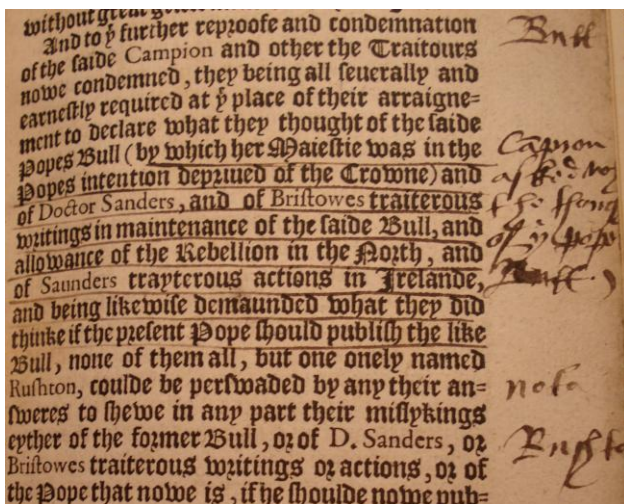 without great
And to ẏ further reproofe and condemnation
of the saide Campion and other the Traitours
nowe condemned, they being all seuerally and
earnestly required at ẏ place of their arraigne=
ment to declare what they thought of the saide
Popes Bull (by which her Maiestie was in the
Popes intention depriued of the Crowne) and
of Doctor Sanders, and of Bristowes traiterous
writings in maintenance of the saide Bull, and
allowance of the Rebellion in the North, and
of Saunders trayterous actions in Irelande,
and being likewise demaunded what they did
thinke if the present Pope should publish the like
Bull, none of them all, but one onely named
Rushton, coulde be perswaded by any their an=
sweres to shewe in any part their mislykings
eyther of the former Bull, or of D. Sanders, or
Bristowes traiterous writings or actions, or of
the Pope that nowe is, if he shoulde nowe pub=
Bull
of ẏ pope
Bull
nota